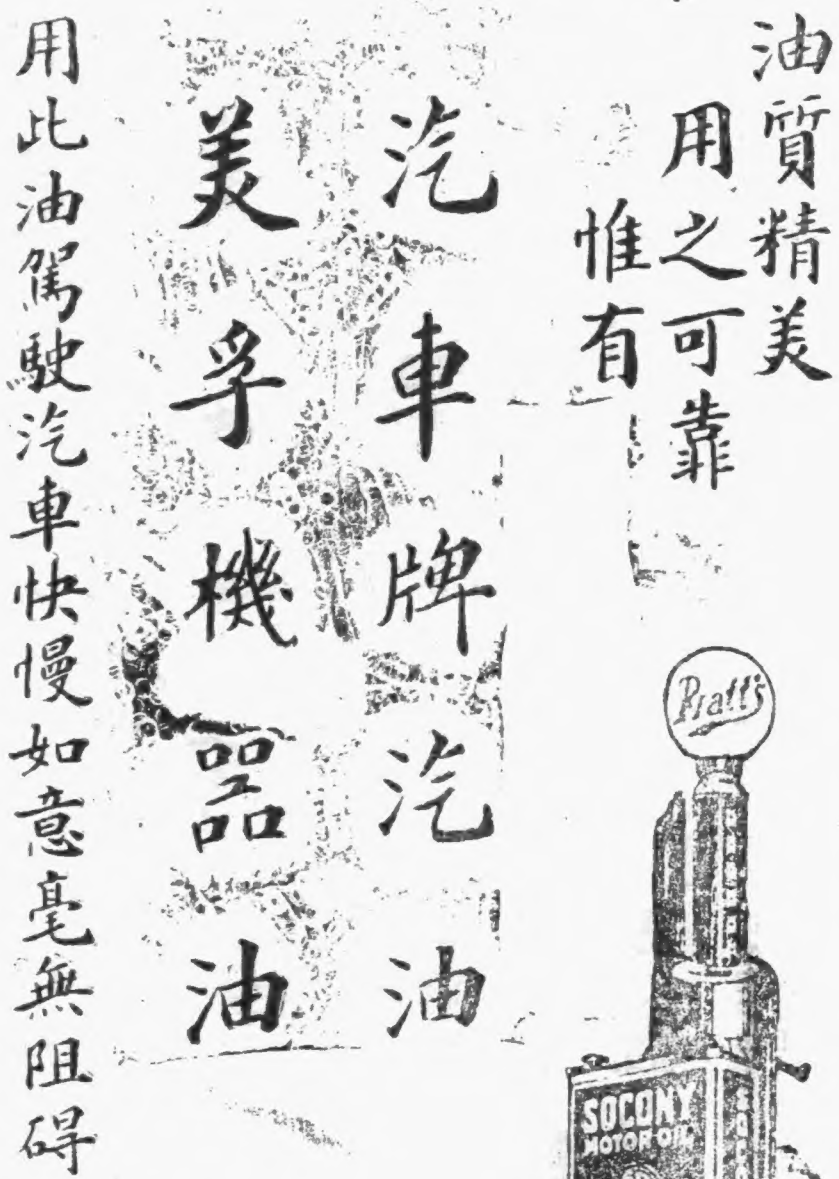 油質精美
用之可靠
惟有
汽車牌汽油
美孚機器油
用此油駕駛汽車快慢如意毫無阻碍
Pratt's
SOCONY
MOTOR OIL